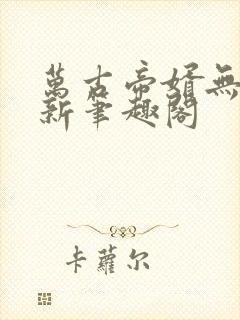 萬古帝婿無
新筆趣閣
卡蘿尔